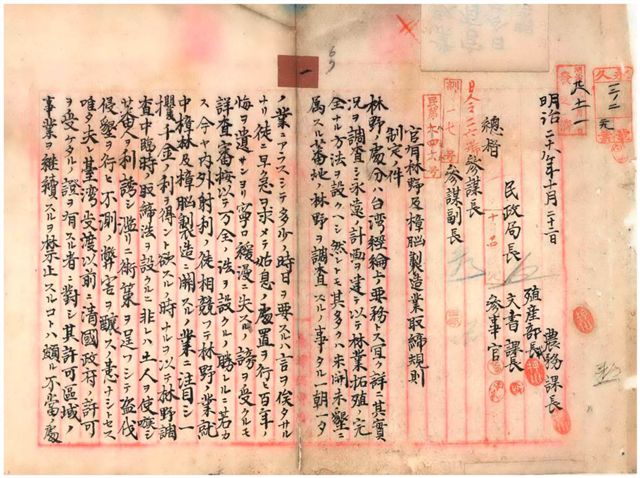 永久
明治二十八年十月三十一日
民政局長
殖産部長
農務課長
文書課長
参事官
總督
参謀長
参謀副長
官有林野及樟腦製造業取締規則
制定ノ件
林野ノ處分ハ台湾經綸ノ要務ス宜ク詳ニ其實
況ヲ調査シ永遠ノ計画ヲ建テ以テ林業拓殖ノ完
全ナル方法ヲ設クヘシ然レトモ其多クハ未開未墾ニ
属スル蕃地ノ林野ヲ調査スルノ事タル一朝一夕
ノ業ニアラスシテ多少ノ時日ヲ要スルハ言ヲ俟タサル
ナリ徒ニ早急ヲ求メテ姑息ノ處置ヲ行ヒ百年ノ
悔ヲ遺サンヨリ寧ロ緩漫ニ失スルノ謗ヲ受クルモ
詳査審悔以テ万全ノ法ヲ設クルノ勝レルニ若カ
ス今ヤ内外射利ノ徒相競フテ林野ノ業就
中樟林及樟腦製造ニ関スル業ニ注目シ一
攫千金ノ利ヲ得ント欲スルノ時ナルヲ以テ林野調
査中臨時取締法ヲ設クルニ非レハ土人ヲ使嗾シ
蕃人ヲ利誘シ濫リニ術策ヲ逞フシテ盗伐
侵墾ヲ行ヒ不測ノ弊害ヲ釀スノ患ナシトセス
唯タ夫レ臺湾受渡以前ニ清國政府ノ許可
ヲ受ケタル證ヲ有スル者ニ對シ其許可區域ノ
事業ヲ継續スルヲ禁止スルコトハ頗ル不當ノ處
一